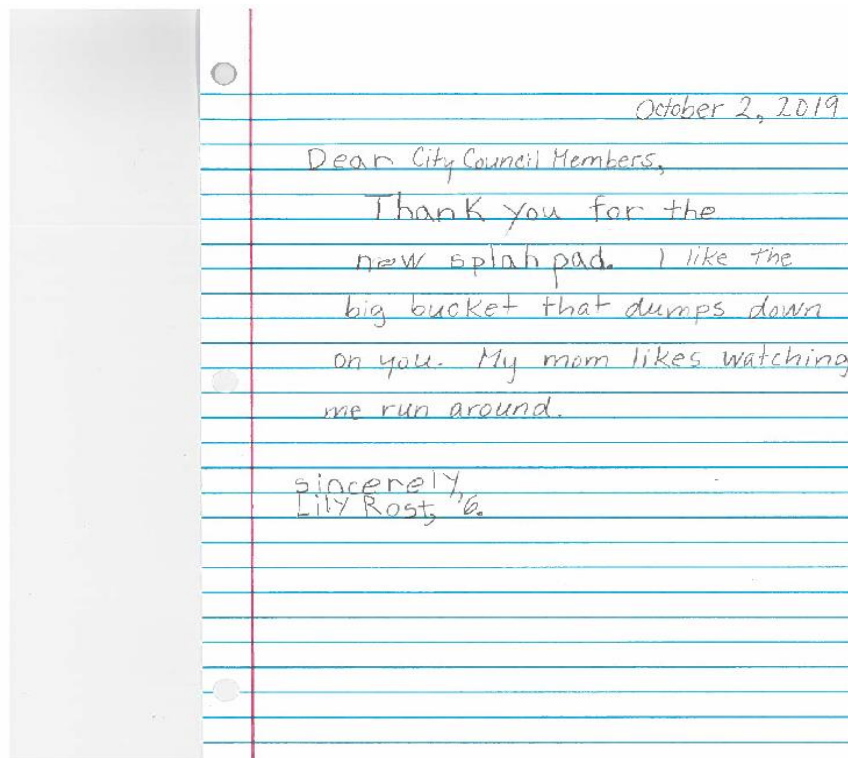 October 2, 2019
Dear City Council Members,
Thank you for the
new splah pad. I like the
big bucket that dumps down
on you. My mom likes watching
me run around.
sincerely,
Lily Rost, 6.